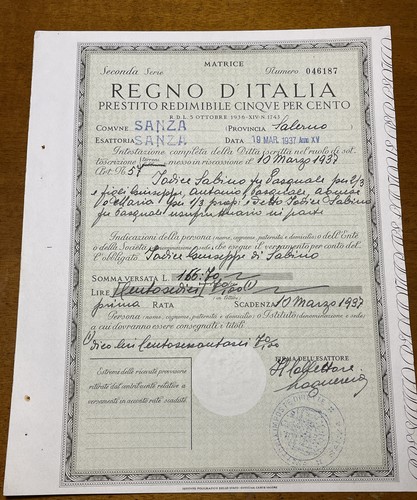 MATRICE
Seconda Serie Numero 046187
REGNO D'ITALIA
PRESTITO REDIMIBILE CINQVE PER CENTO
R.D.L. 5 OTTOBRE 1936-XIV-N. 1743
COMVNE SANZA (PROVINCIA Salerno)
ESATTORIA SANZA DATA 19 MAR. 1937 Anno XV
Intestazione completa della Ditta iscritta nel ruolo di sot-
toscrizione messo in riscossione il 10 Marzo 1937
Art. N. 57
Iodice Sabino fu Pasquale per 2/3
e figli Giuseppe, Antonio, Pasquale,
Maria per 1/3 propr. e detto Iodice Sabino
fu Pasquale usufruttuario in parte
Indicazioni della persona (nome, cognome, paternità e domicilio) o dell'Ente
o della Società che esegue il versamento per conto del-
l'obbligato Iodice Giuseppe di Sabino
SOMMA VERSATA L.
LIRE
(in lettere)
prima RATA SCADENZA 10 Marzo 1937
Persona (nome, cognome, paternità e domicilio) o Istituto (denominazione e sede)
a cui dovranno essere consegnati i titoli
FIRMA DELL'ESATTORE
Il Collettore
Estremi delle ricevute provvisorie
ritirate dal contribuente relative a
versamenti in acconto rate scadute